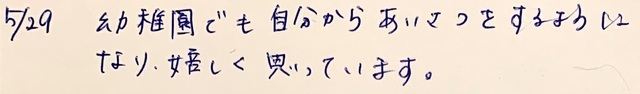 5/29 幼稚園でも自分からあいさつをするように
なり、嬉しく思っています。